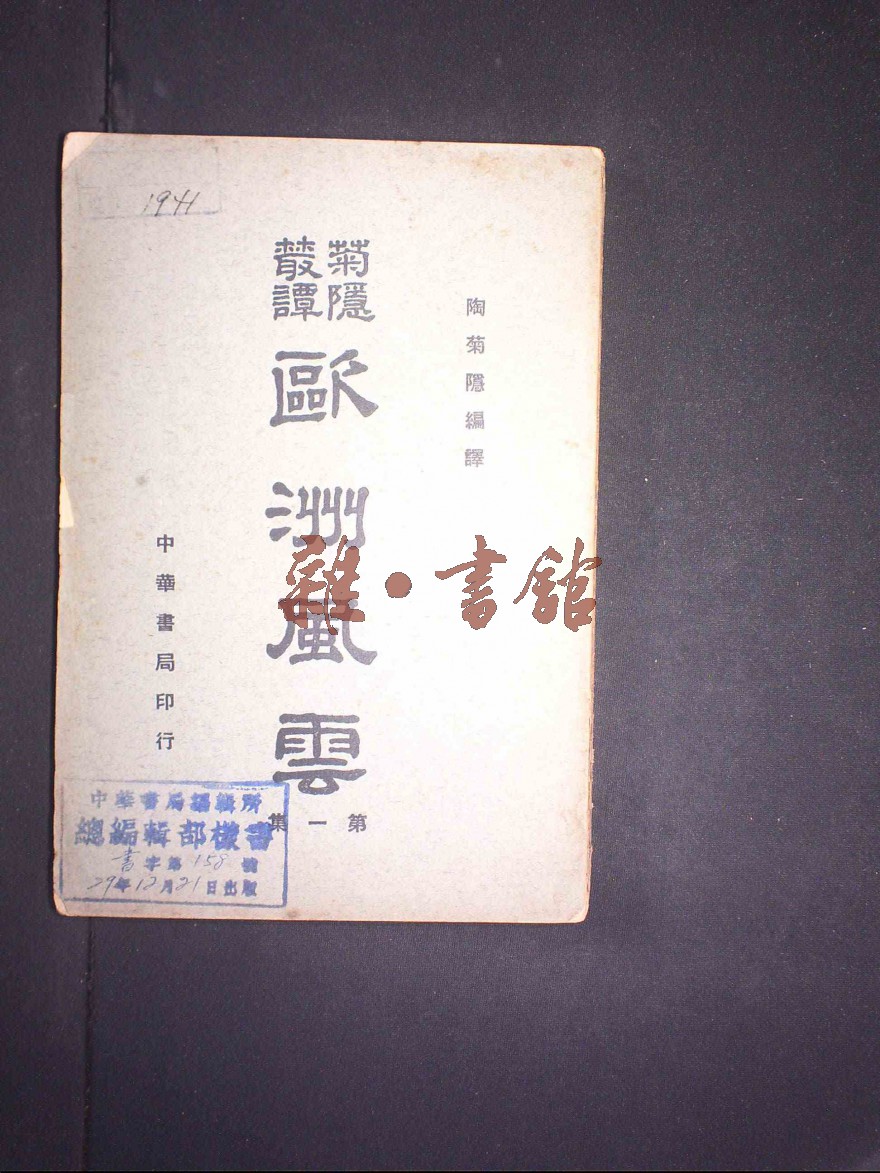 1941
陶菊隱編譯
菊隱
叢譚
歐洲風雲
第一集
中華書局印行
雜·書館
中華書局編輯所
總編輯部樣書
書字第158號
29年12月21日出版